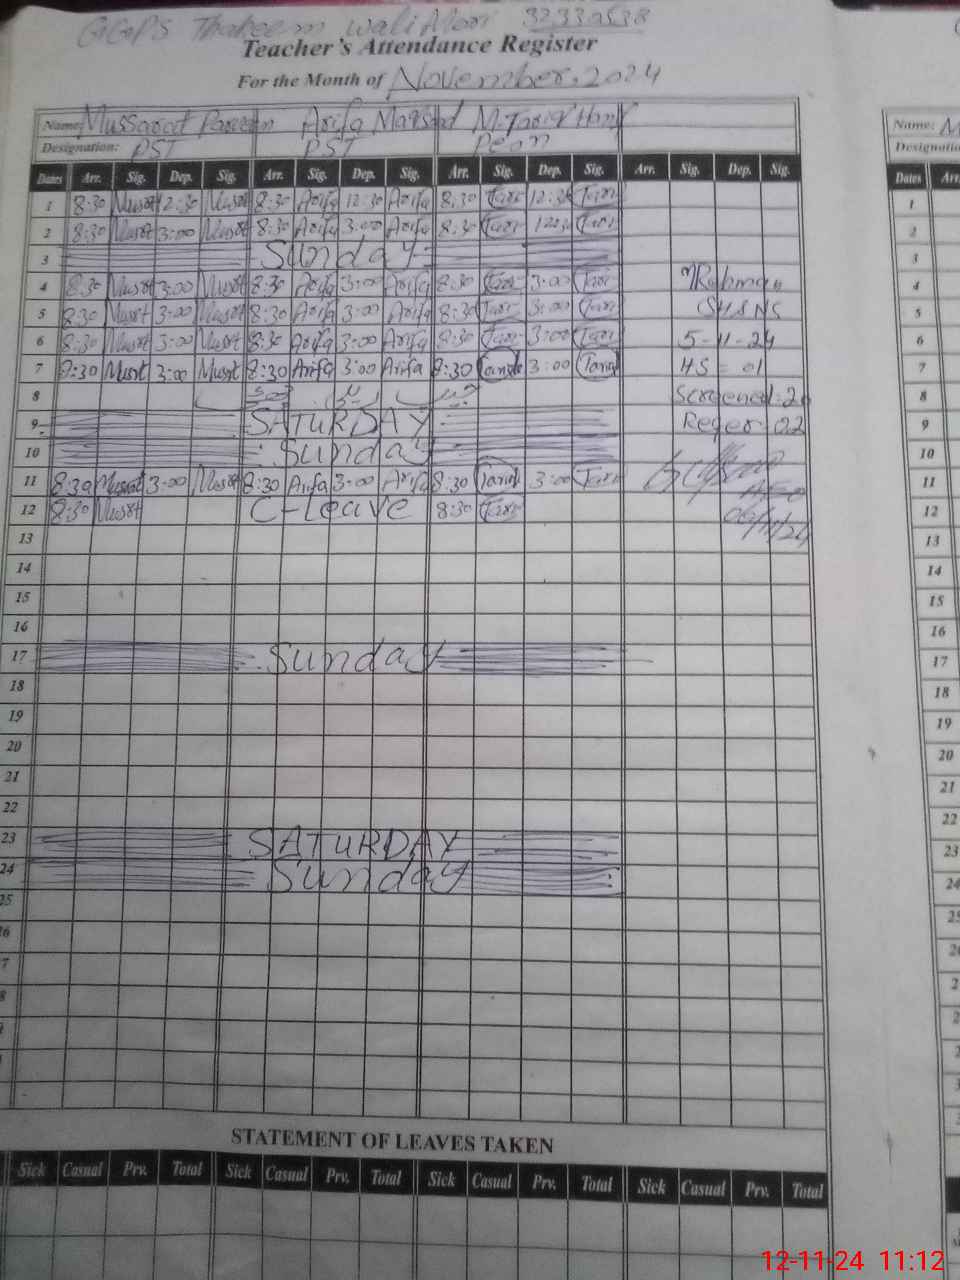 GGPS Thakeem Wali Mori 32330538
Teacher's Attendance Register
For the Month of November, 2024
Name: Mussarat Parveen Arifa Marshad M. Tariq Hanif
Designation: PST PST Peon
Dates Arr. Sig. Dep. Sig. Arr. Sig. Dep. Sig. Arr. Sig. Dep. Sig. Arr. Sig. Dep. Sig.
1 8:30 Musrt 12:30 Musrt 8:30 Arifa 12:30 Arifa 8:30 Tari 12:30 Tari
2 8:30 Musrt 3:00 Musrt 8:30 Arifa 3:00 Arifa 8:30 Tari 1230 Tari
3 Sunday
4 8:30 Musrt 3:00 Musrt 8:30 Arifa 3:00 Arifa 8:30 Tari 3:00 Tari Rehman
5 8:30 Musrt 3:00 Musrt 8:30 Arifa 3:00 Arifa 8:30 Tari 3:00 Tari SH&NS
6 8:30 Musrt 3:00 Musrt 8:30 Arifa 3:00 Arifa 8:30 Tari 3:00 Tari 5-11-24
7 8:30 Musrt 3:00 Musrt 8:30 Arifa 3:00 Arifa 8:30 Tariq 3:00 Tariq HS = 01
8 Screened: 20
9 SATURDAY Refer 02
10 Sunday
11 8:30 Musrat 3:00 Musrt 8:30 Arifa 3:00 Arifa 8:30 Tariq 3:00 Tari AEO
12 8:30 Musrt C-Leave 8:30 Tari 06/11/24
13
14
15
16
17 Sunday
18
19
20
21
22
23 SATURDAY
24 Sunday
25
STATEMENT OF LEAVES TAKEN
Sick Casual Prv. Total Sick Casual Prv. Total Sick Casual Prv. Total Sick Casual Prv. Total
Name: M
Designatio
Dates Arr
1
2
3
4
5
6
7
8
9
10
11
12
13
14
15
16
17
18
19
20
21
22
23
24
25
12-11-24 11:12